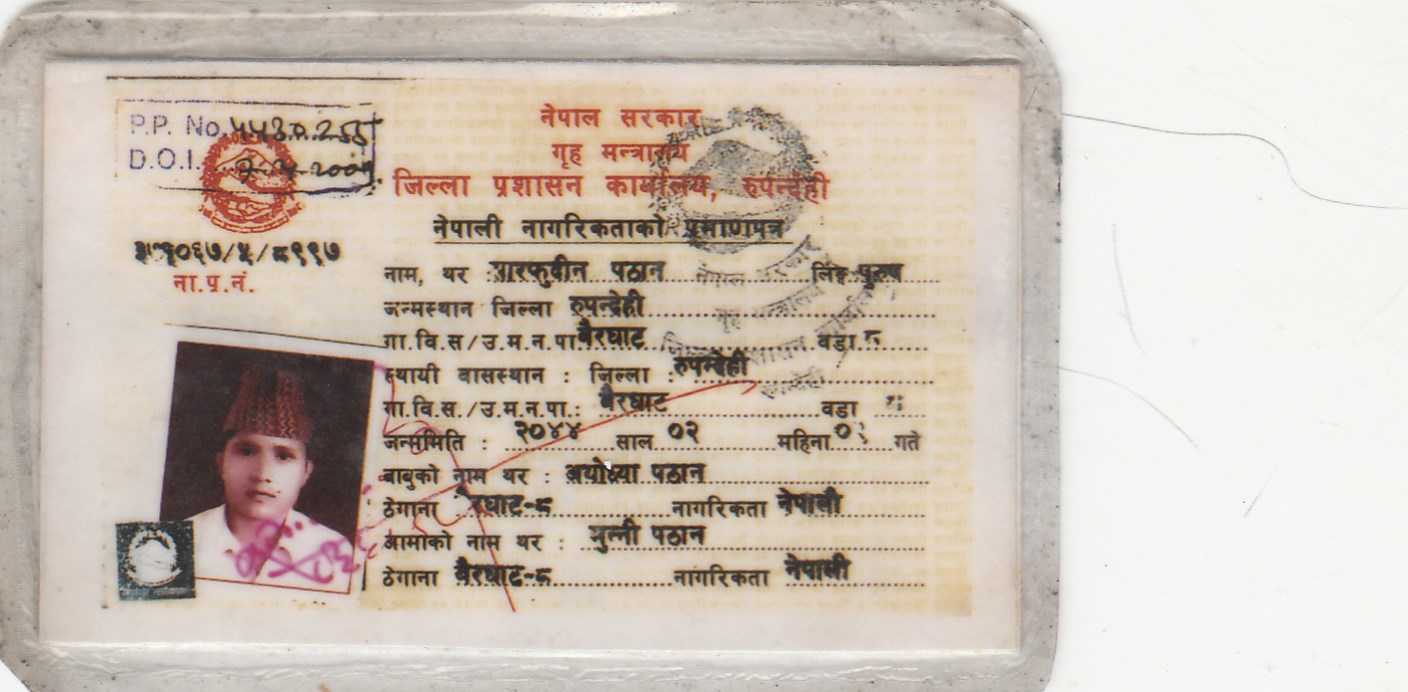 P.P. No.
D.O.I.
नेपाल सरकार
गृह मन्त्रालय
जिल्ला प्रशासन कार्यालय, रुपन्देही
नेपाली नागरिकताको प्रमाणपत्र
ना.प्र.नं.
नाम, थर : पठान लिङ्ग पुरुष
जन्मस्थान जिल्ला रुपन्देही
गा.वि.स/उ.म.न.पा बैरघाट वडा ८
स्थायी वासस्थान : जिल्ला : रुपन्देही
गा.वि.स./उ.म.न.पा.: बैरघाट वडा
जन्ममिति : २०४४ साल ०२ महिना गते
बाबुको नाम थर : अयोध्या पठान
ठेगाना बैरघाट-८ नागरिकता नेपाली
आमाको नाम थर : मुन्नी पठान
ठेगाना बैरघाट-८ नागरिकता नेपाली
नेपाल सरकार
गृह मन्त्रालय